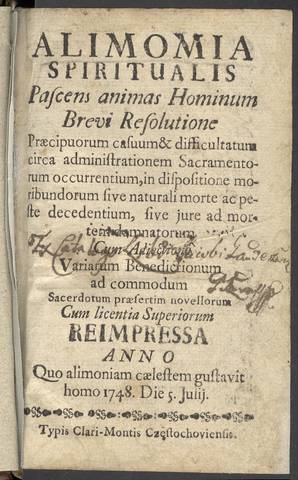 ALIMOMIA
SPIRITUALIS
Pascens animas Hominum
Brevi Resolutione
Præcipuorum casuum & difficultatum
circa administrationem Sacramento-
rum occurrentium, in dispositione mo-
ribundorum sive naturali morte ac pe-
ste decedentium, sive jure ad mor-
tem damnatorum
Cum Adiectione
Variarum Benedictionum
ad commodum
Sacerdotum præsertim novellorum
Cum licentia Superiorum
REIMPRESSA
ANNO
Quo alimoniam cælestem gustavit
homo 1748. Die 5. Julij.
Typis Clari-Montis Częstochoviensis.